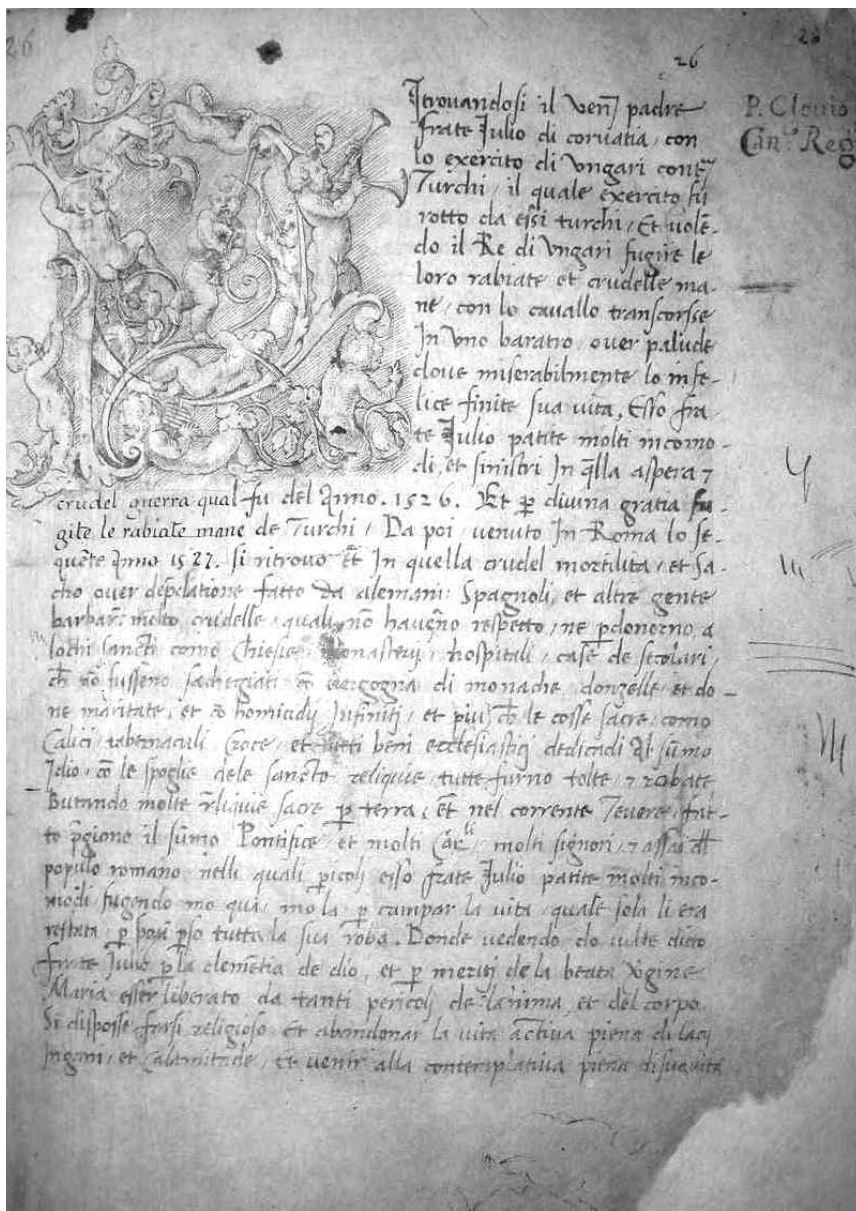 26
26
26
P. Clouio
Can.co Reg
Itrouandosi il ven. padre
frate Julio di coruatia, con
lo exercito di vngari cont.
Turchi, il quale exercito fu
rotto da essi turchi, Et uolē-
do il Re di vngari fugire le
loro rabiate et crudelle ma-
ne, con lo cauallo transcorsse
In vno baratro, ouer palude
doue miserabilmente lo infe-
lice finite sua vita, Esso fra-
te Julio patite molti incomo-
di, et sinistri In q̄lla aspera 7
crudel guerra qual fu del Anno. 1526. Et ꝑ diuina gratia fu-
gite le rabiate mane de Turchi, Da poi, venuto In Roma lo se-
quēte Anno 1527. si ritrouo ēt In quella crudel mortilita, et sa-
cho ouer depelatione fatto da alemani: Spagnoli, et altre gente
barbar: molto crudelle, quali nō haueño respetto, ne ꝑdonorno a
lochi sancti como Chiesie, Monasterij, hospitali, case de secolari,
ch̄ nō fusseno sachegiati cō vergogna di monache, donzelle, et do-
ne maritate, et cō homicidij Infinitj, et piu, cō le cosse sacre, como
Calici, tabernaculi, Croce, et tutti beni ecclesiastici dedicadi Al sūmo
Idio, cō le spoglie dele sancte reliquie tutte furno tolte 7 robate
Butando molte rliquie sacre ꝑ terra, ēt nel corrente Teuere, fat-
to ꝑgiono il sūmo Pontifice, et molti Car.li molti signori, 7 assai dl
populo romano, nelli quali ꝑicoli esso frate Julio patite molti inco-
modi fugendo mo qua, mo la ꝑ campar la vita, quale sola li era
restata, ꝑ ꝑso tutta la sua roba. Donde uedendo do uolte dicto
frate Julio ꝑ la clemētia de dio, et ꝑ meriti de la beata v̄gine
Maria esser liberato da tanti pericoli de lanima, et del corpo.
Si disposse farsi religioso et abandonar la vita actiua piena di laci
Ingani, et Calamitade, et venir alla contemplatiua piena di suauita